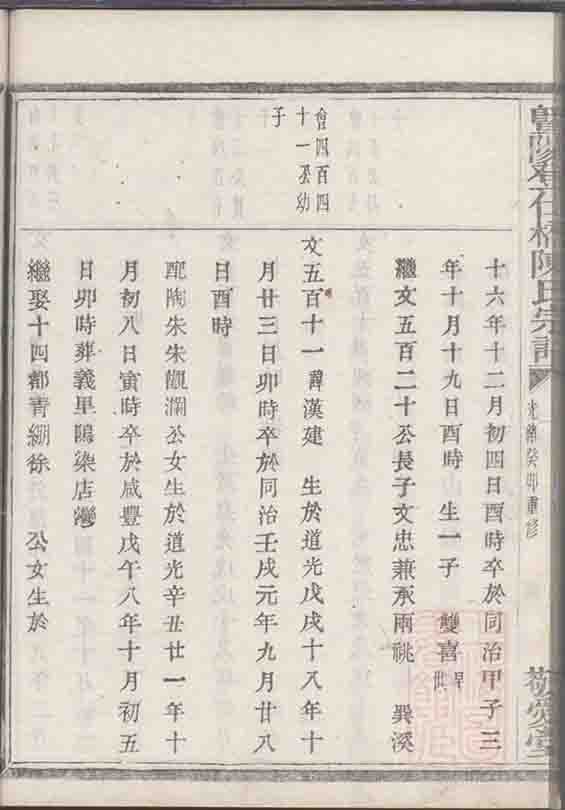 暨陽孝仁橋陳氏宗譜
光緒癸卯重修
敬愛堂
十六年十二月初四日酉時卒於同治甲子三
年十月十九日酉時 生一子 雙喜早世
繼文五百二十公長子文忠兼承兩祧 巽溪
會四百四
十一公幼
子
文五百十一諱漢建 生於道光戊戌十八年十
月廿三日卯時卒於同治壬戌元年九月廿八
日酉時
配陶朱朱觀瀾公女生於道光辛丑廿一年十
月初八日寅時卒於咸豐戊午八年十月初五
日卯時葬義里陽染店灣
繼娶十四都青綳徐 公女生於